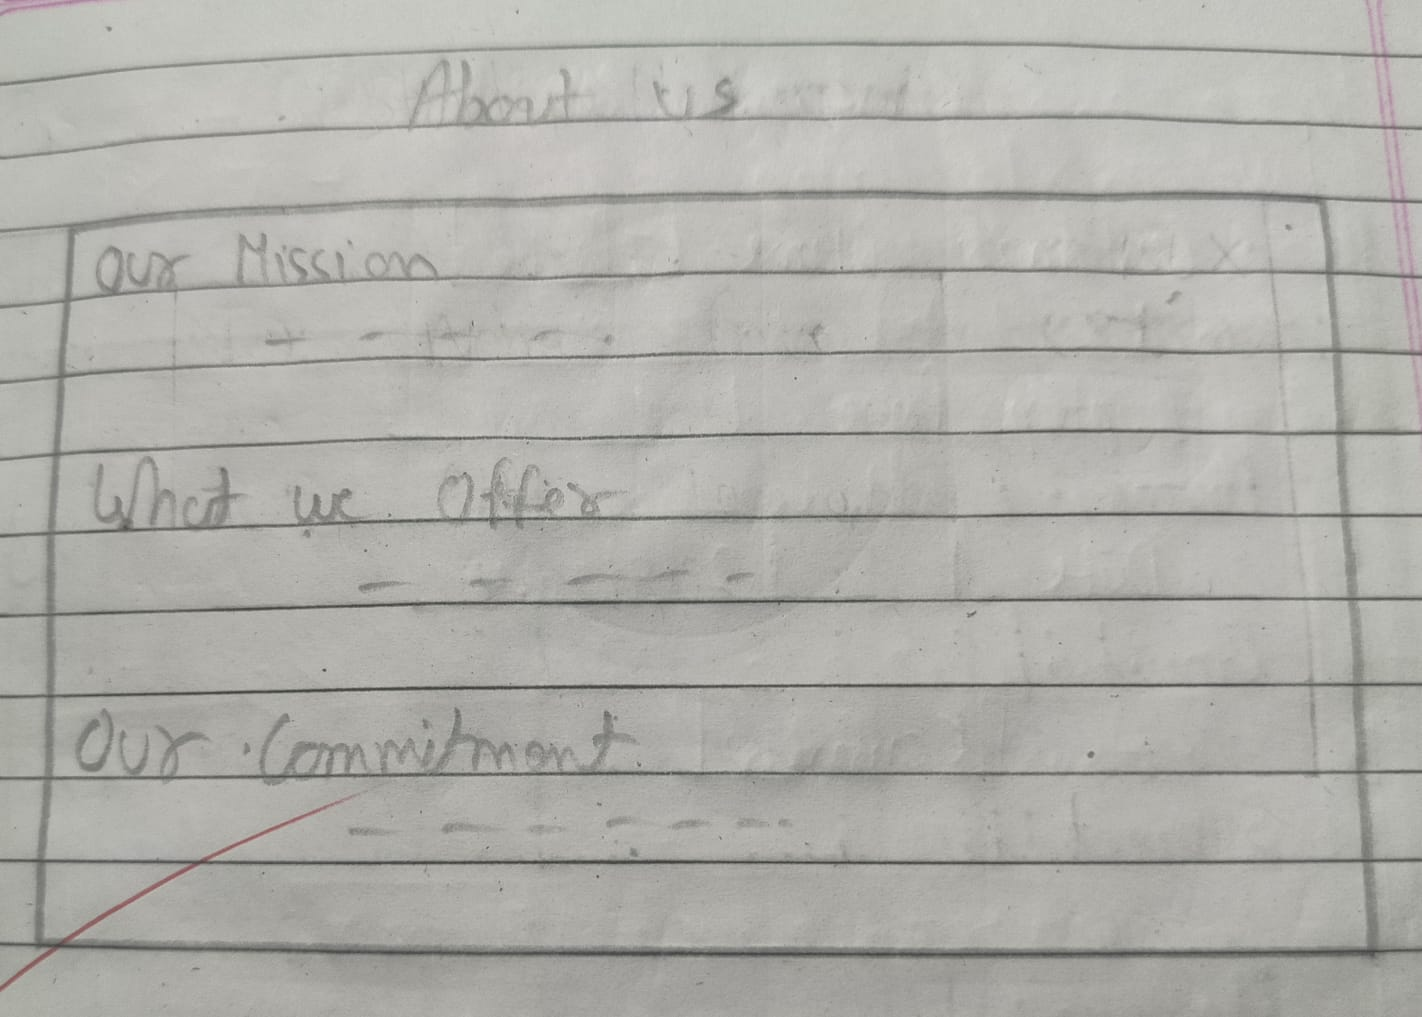 About us
Our Mission
- - - - .
What we Offer
- - - - -
Our Commitment.
- - - - - - -